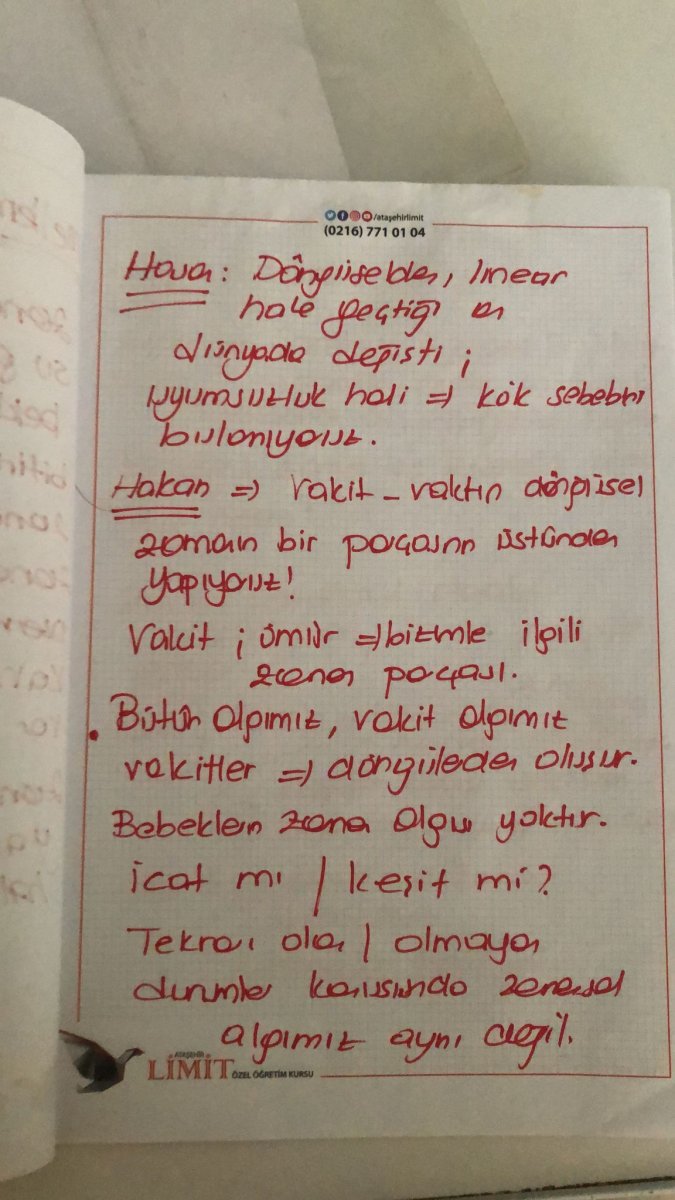 /ataşehirlimit
(0216) 771 01 04
Hava: Döngüselden, linear
hale geçtiği an
dünyada değişti ;
uyumsuzluk hali => kök sebebini
bulanıyoruz.
Hakan => vakit - vaktin döngüsel
zaman bir parçasının üstünden
yapıyoruz!
Vakit ; ömür => bizimle ilgili
zaman parçası.
. Bütün algımız, vakit algımız
vakitler => döngülerden oluşur.
Bebeklerin zaman olgusu yoktur.
İcat mı / keşif mi?
Tekrarı olan / olmayan
durumlar karşısında zamansal
algımız aynı değil.
ATAŞEHİR
LİMİT ÖZEL ÖĞRETİM KURSU